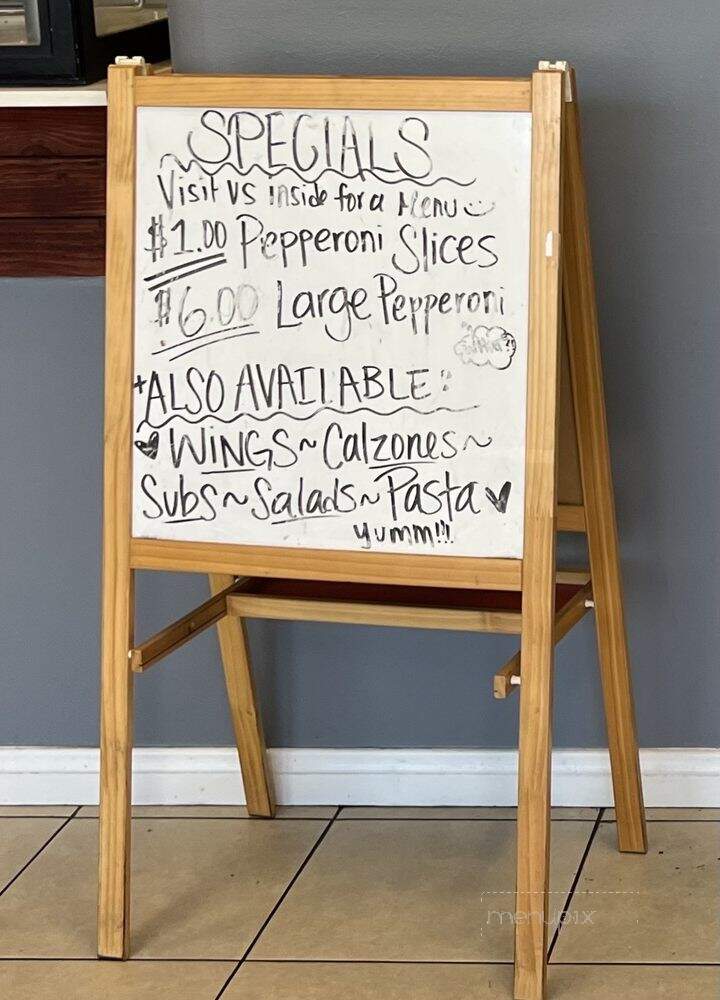 SPECIALS
Visit VS inside for a Menu
$1.00 Pepperoni Slices
$6.00 Large Pepperoni
+ALSO AVAILABLE:
WINGS~Calzones~
Subs~Salads~Pasta
yumm!!!
menupix